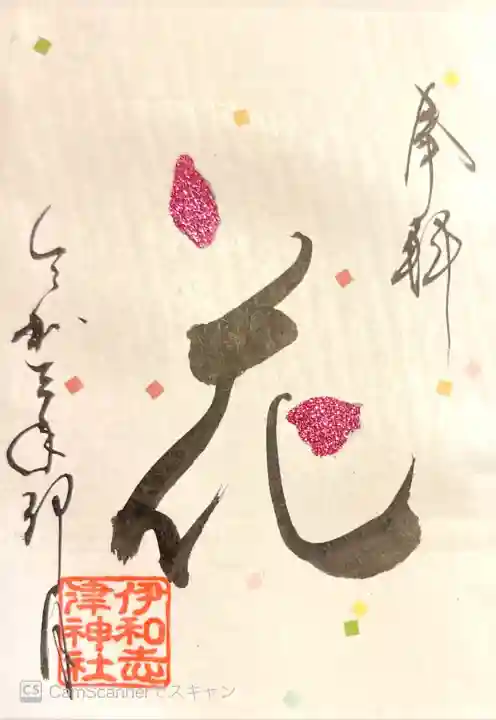 奉拝
花
令和三年卯月
伊和志
津神社
CS CamScannerでスキャン